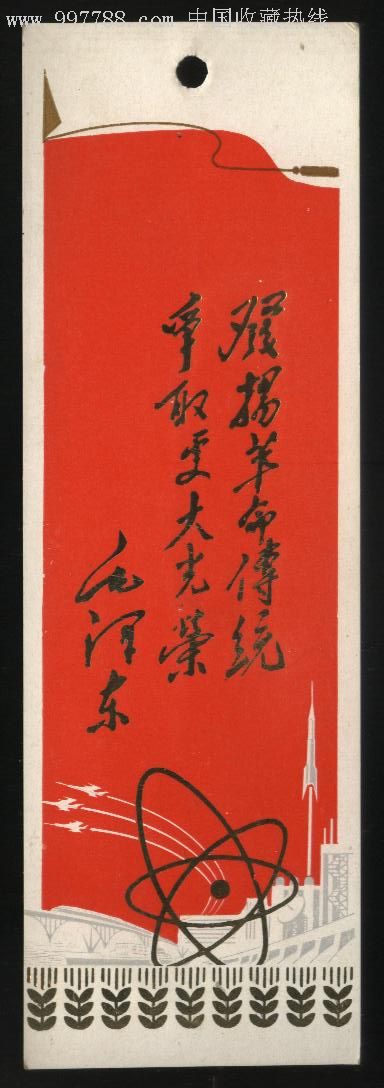 www.997788.com 中国收藏热线
發揚革命傳統
爭取更大光榮
毛泽东